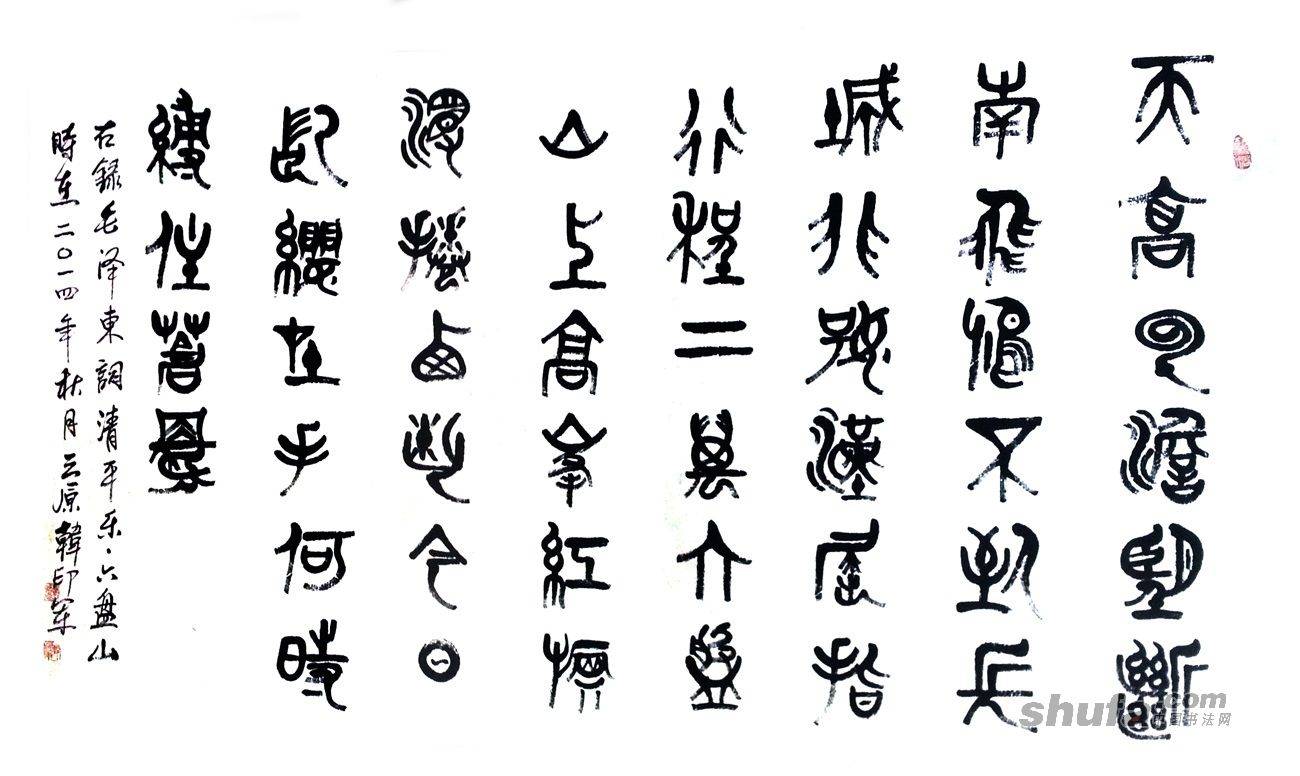 天高云澹望斷
南飛雁不到長
城非好漢屈指
行程二萬六盤
山上高峯紅旗
漫捲西風今日
長纓在手何時
縛住蒼龍
右録毛泽東詞清平乐·六盘山
時在二〇一四年秋月三原韓印军
shufa.com
中国书法网